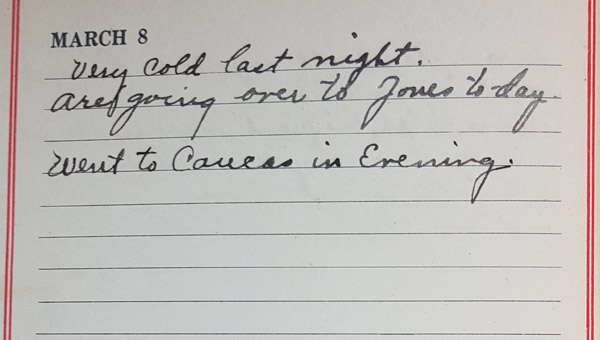 MARCH 8
Very cold last night.
are going over to Jones to-day.
Went to Caucas in Evening.